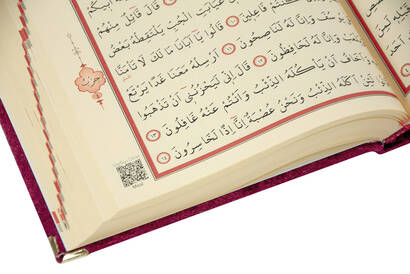 قَالَ قَٓائِلٌ مِنْهُمْ
غَيَابَتِ الْجُبِّ يَلْتَقِطْهُ بَعْضُ
كُنْتُمْ فَاعِلٖينَ ﴿١٠﴾ قَالُوا يَٓا اَبَانَا مَا لَكَ لَا تَأْمَنَّا
وَاِنَّا لَهُ لَنَاصِحُونَ ﴿١١﴾ اَرْسِلْهُ مَعَنَا غَدًا يَرْتَعْ
وَاِنَّا لَهُ لَحَافِظُونَ ﴿١٢﴾ قَالَ اِنّٖي لَيَحْزُنُنٖٓي اَنْ تَذْهَبُوا
وَاَخَافُ اَنْ يَأْكُلَهُ الذِّئْبُ وَاَنْتُمْ عَنْهُ غَافِلُونَ ﴿١٣﴾
اَكَلَهُ الذِّئْبُ وَنَحْنُ عُصْبَةٌ اِنَّٓا اِذًا لَخَاسِرُونَ ﴿١٤﴾